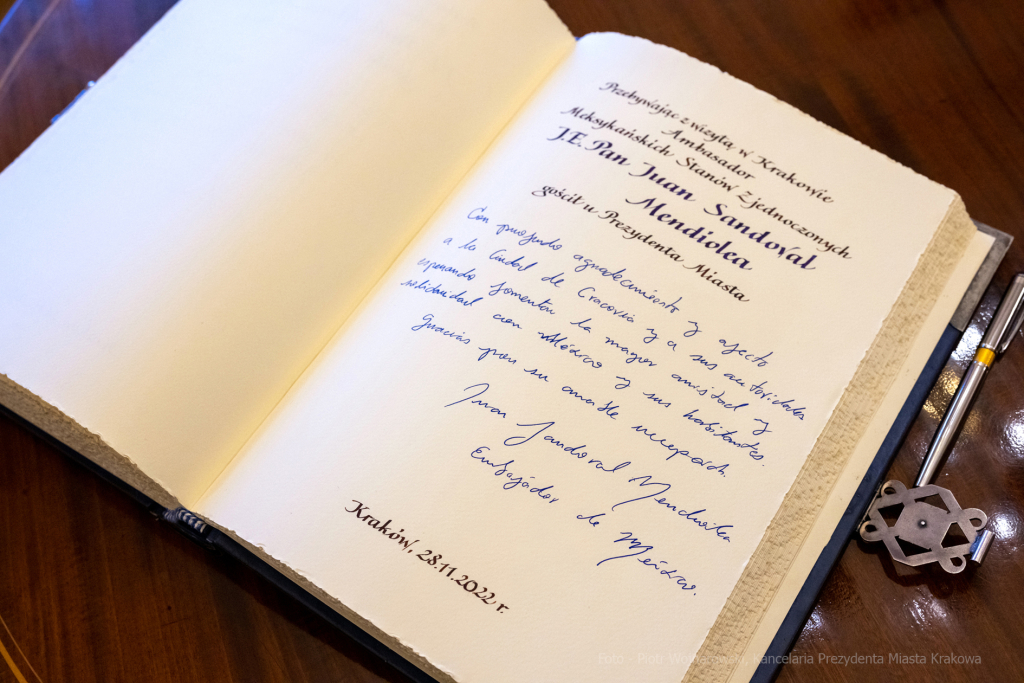 Przebywając z wizytą w Krakowie
Ambasador
Meksykańskich Stanów Zjednoczonych
J.E. Pan Juan Sandoval
Mendiolea
gościł u Prezydenta Miasta
Con profundo agradecimiento y afecto
a la Ciudad de Cracovia y a sus autoridades
esperando fomentar la mayor amistad y
solidaridad con México y sus habitantes.
Gracias por su amable recepción.
Juan Sandoval Mendiolea
Embajador de México.
Kraków, 28.11.2022 r.
Foto - Piotr Wojnarowski, Kancelaria Prezydenta Miasta Krakowa